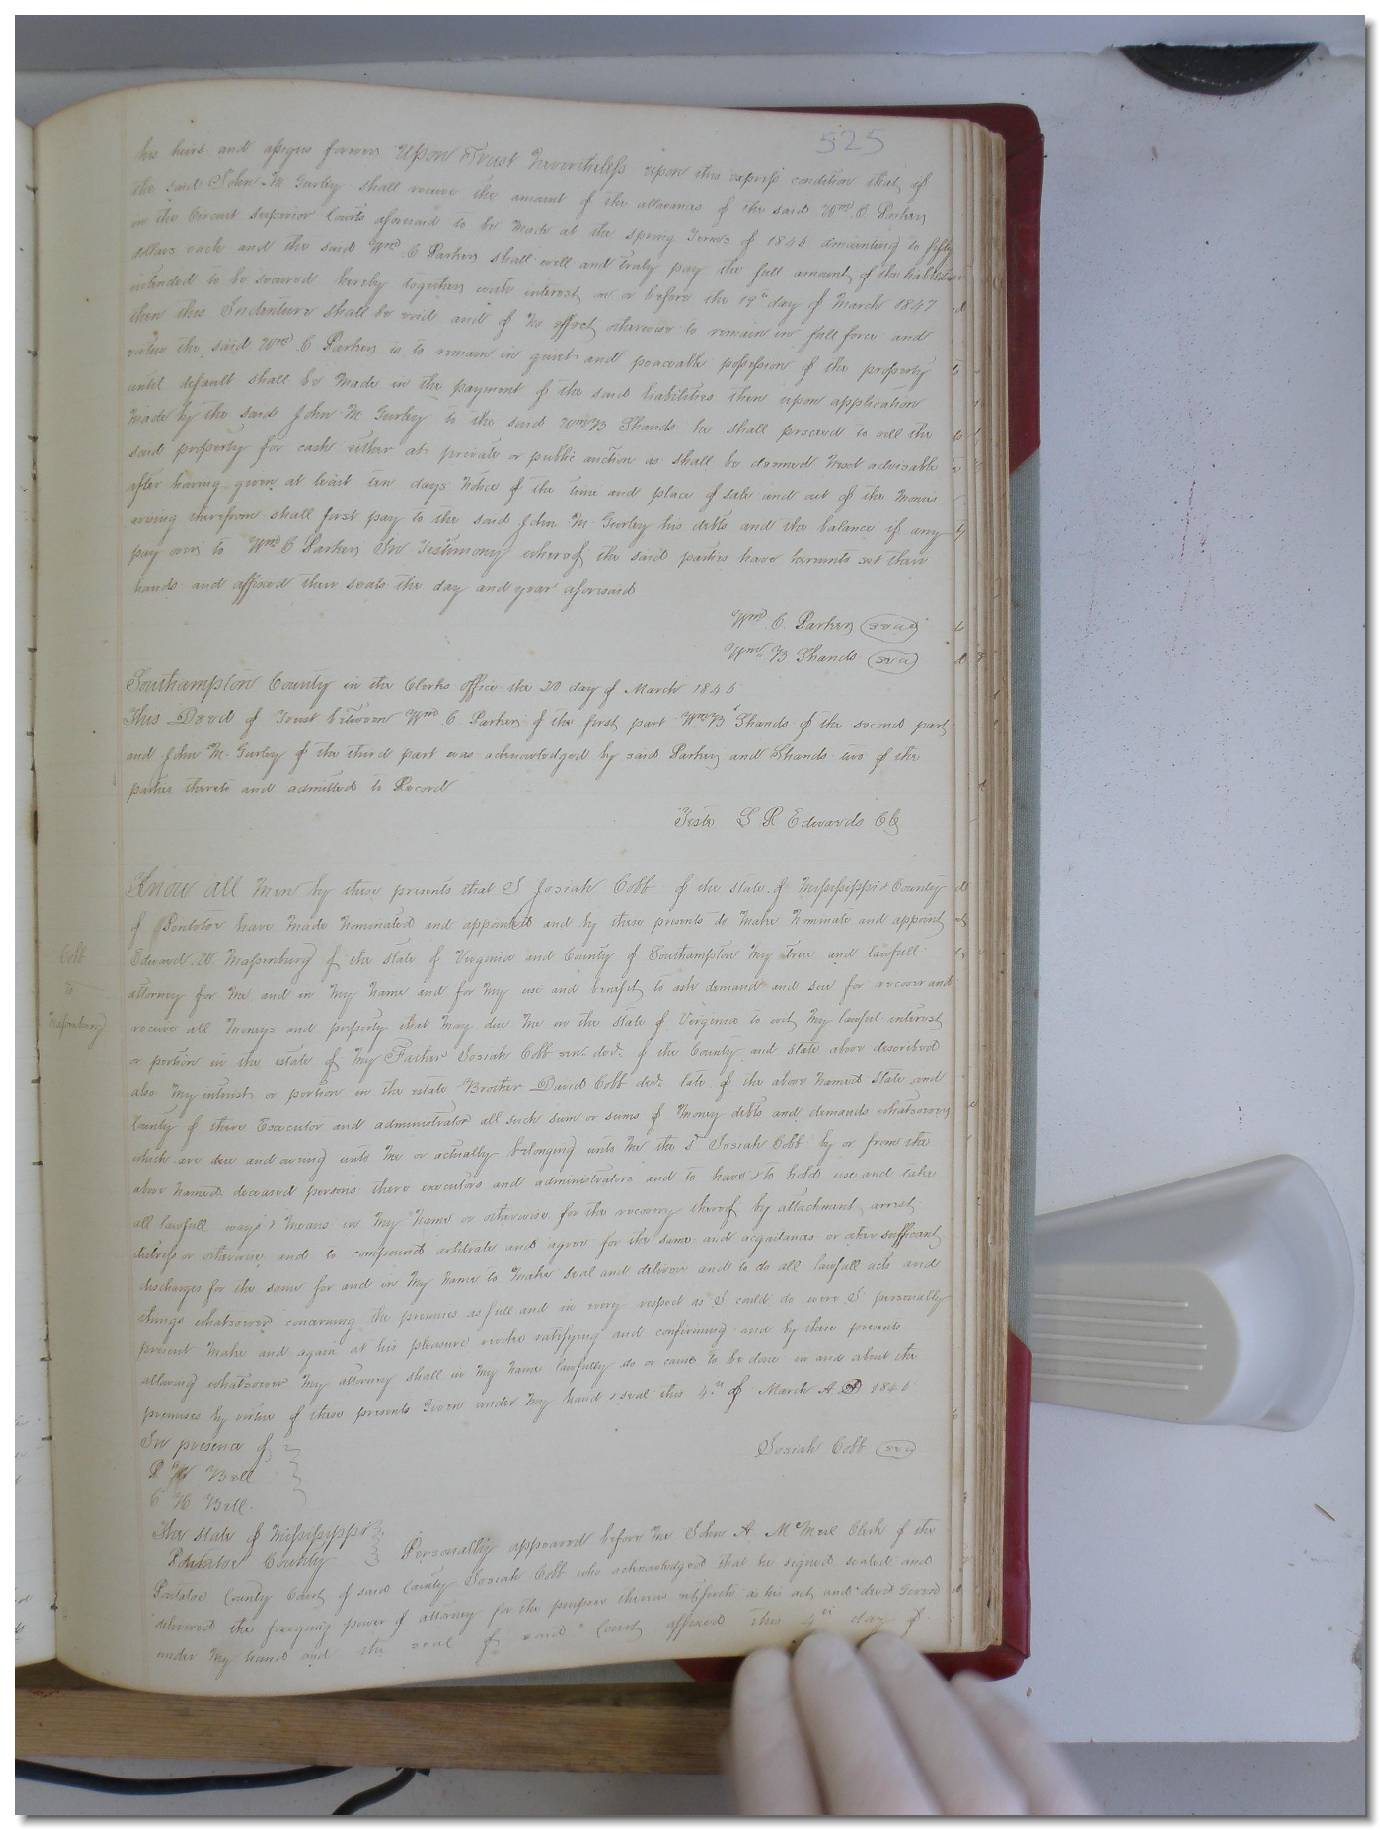 525
his heirs and assigns forever Upon Trust Nevertheless upon this express condition that if
the said John M Gurley shall receive the amount of the allowances of the said Wm C Parker
in the Circuit Superior Courts aforesaid to be made at the Spring Terms of 1846 amounting to fifty
dollars each and the said Wm C Parker shall well and truly pay the full amount of the liabilities
intended to be secured hereby together with interest on or before the 19th day of March 1847
then this Indenture shall be void and of no effect otherwise to remain in full force and
virtue the said Wm C Parker is to remain in quiet and peaceable possession of the property
until default shall be made in the payment of the said liabilities then upon application
made by the said John M Gurley to the said Wm B Shands he shall proceed to sell the
said property for cash either at private or public auction as shall be deemed most advisable
after having given at least ten days notice of the time and place of sale and out of the monies
arising therefrom shall first pay to the said John M Gurley his debts and the balance if any
pay over to Wm C Parker In Testimony whereof the said parties have hereunto set their
hands and affixed their seals the day and year aforesaid
Wm C. Parker (seal)
Wm B Shands (seal)
Southampton County in the Clerks office the 20 day of March 1846
This Deed of Trust between Wm C Parker of the first part Wm B Shands of the second part
and John M. Gurley of the third part was acknowledged by said Parker and Shands two of the
parties thereto and admitted to Record
Teste L R Edwards Clk
Cobb
To
Massenburg
Know all men by these presents that I Josiah Cobb of the state of Mississippi County
of Pontotoc have made nominated and appointed and by these presents do make nominate and appoint
Edward W. Massenburg of the state of Virginia and County of Southampton my true and lawfull
attorney for me and in my name and for my use and benefit to ask demand and sue for recover and
receive all moneys and property that may due me in the state of Virginia to wit my lawful interest
or portion in the estate of my Father Josiah Cobb sen. decd. of the County and state above described
also my interest or portion in the estate Brother David Cobb decd. late of the above named state and
County of there Executor and administrator all such sum or sums of money debts and demands whatsoever
which are due and owing unto me or actually belonging unto me the sd Josiah Cobb by or from the
above named deceased persons there executors and administrators and to have & to hold use and take
all lawfull ways & means in my name or otherwise for the recovery thereof by attachment arrest
distress or otherwise and to compound arbitrate and agree for the same and acquitances or other sufficient
discharges for the same for and in my name to make seal and deliver and to do all lawfull acts and
things whatsoever concerning the premises as full and in every respect as I could do were I personally
present make and again at his pleasure revoke ratifying and confirming and by these presents
allowing whatsoever my attorney shall in my name lawfully do or cause to be done in and about the
premises by virtue of these presents Given under my hand & seal this 4th of March A D 1846
In presence of
Josiah Cobb (seal)
R W Bell
C H Bell.
The state of Mississippi
Pontotoc County
Personally appeared before me John A McNeil Clerk of the
Pontotoc County Court of said County Josiah Cobb who acknowledged that he signed sealed and
delivered the foregoing power of attorney for the purpose therein as his act and deed Given
under my hand and the seal of said Court affixed this 4th day of